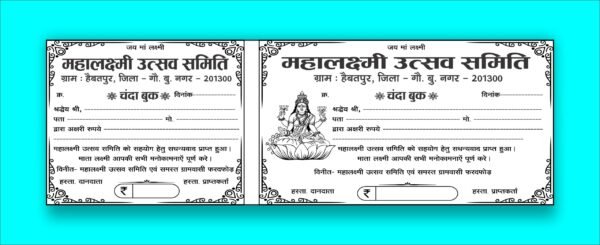 जय मां लक्ष्मी
महालक्ष्मी उत्सव समिति
ग्राम : हैबतपुर, जिला - गौ. बु. नगर - 201300
क्र. चंदा बुक दिनांक
श्रद्धेय श्री,
पता मो.
द्वारा अक्षरी रुपये
महालक्ष्मी उत्सव समिति को सहयोग हेतु सधन्यवाद प्राप्त हुआ।
माता लक्ष्मी आपकी सभी मनोकामनाएँ पूर्ण करे।
विनीत- महालक्ष्मी उत्सव समिति एवं समस्त ग्रामवासी फरवफोड़
हस्ता. दानदाता ₹ हस्ता. प्राप्तकर्ता
जय मां लक्ष्मी
महालक्ष्मी उत्सव समिति
ग्राम : हैबतपुर, जिला - गौ. बु. नगर - 201300
क्र. चंदा बुक दिनांक
श्रद्धेय श्री,
पता मो.
द्वारा अक्षरी रुपये
महालक्ष्मी उत्सव समिति को सहयोग हेतु सधन्यवाद प्राप्त हुआ।
माता लक्ष्मी आपकी सभी मनोकामनाएँ पूर्ण करे।
विनीत- महालक्ष्मी उत्सव समिति एवं समस्त ग्रामवासी फरवफोड़
हस्ता. दानदाता ₹ हस्ता. प्राप्तकर्ता